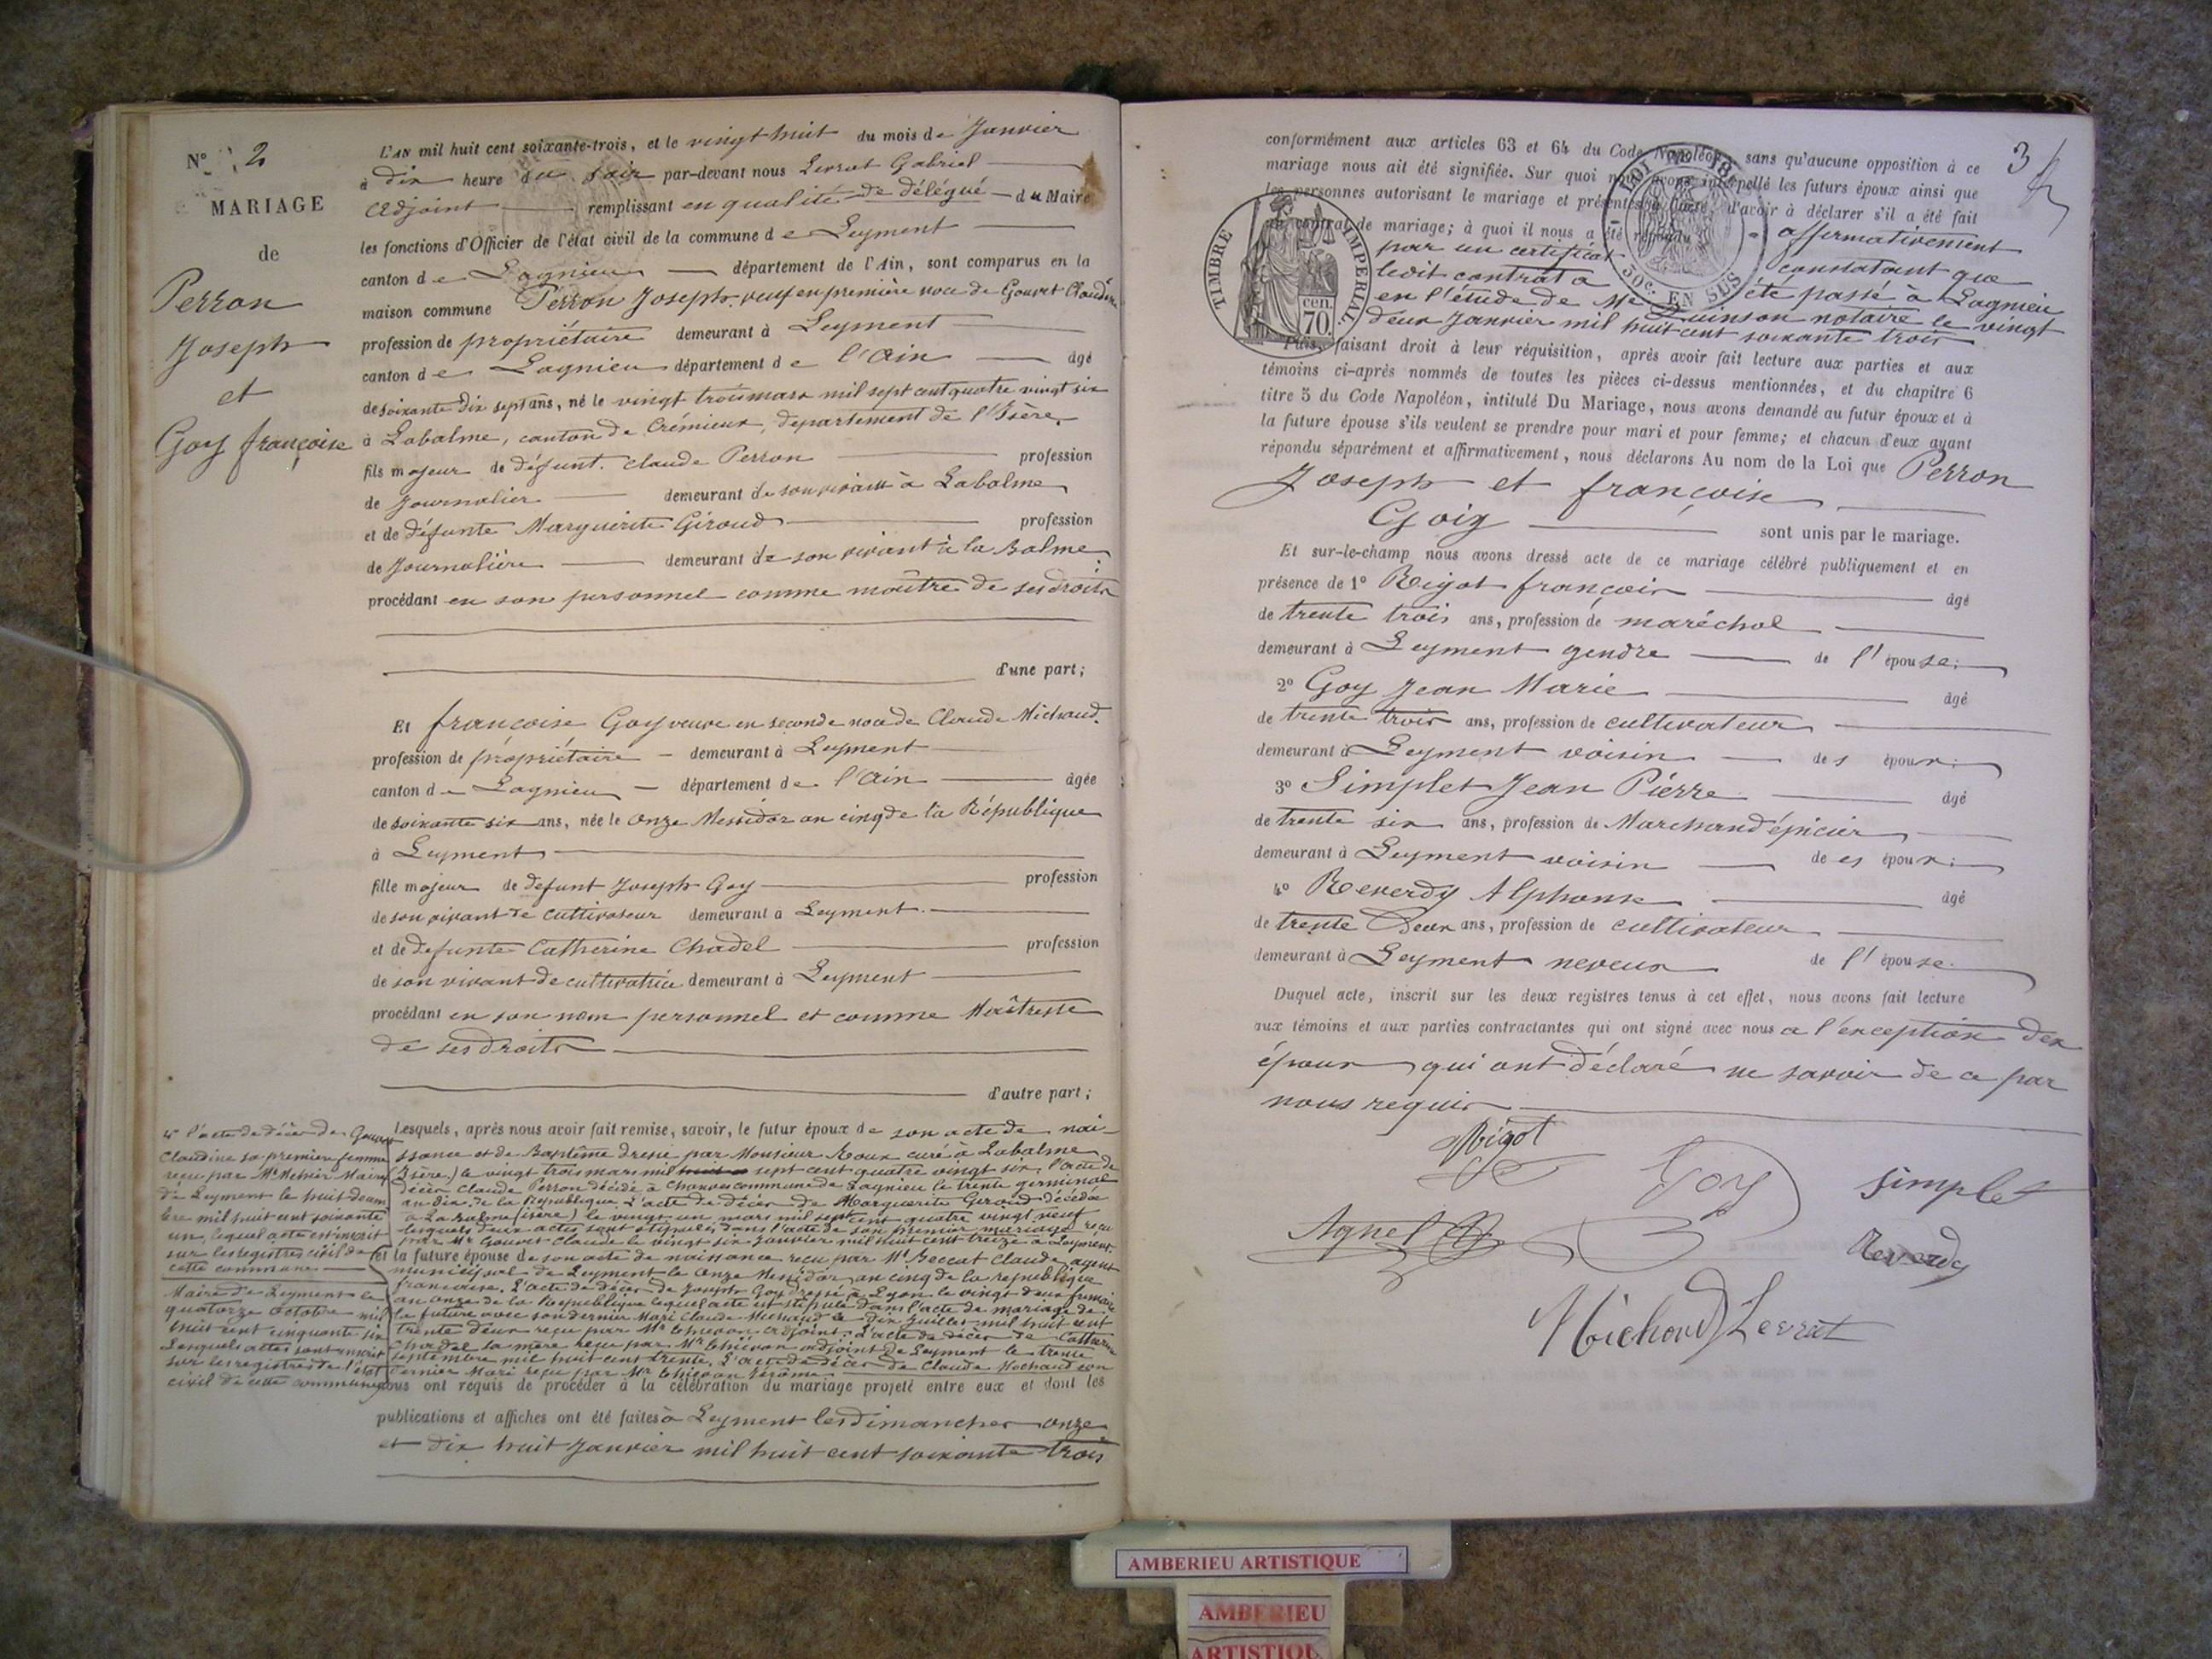 N° 2
MARIAGE
de
Perron
Joseph
et
Goy françoise
L'AN mil huit cent soixante-trois, et le vingt huit du mois de Janvier
à dix heure du soir par-devant nous Levrat Gabriel
Adjoint remplissant en qualité de délégué du Maire
les fonctions d'Officier de l'état civil de la commune de Leyment
canton de Lagnieu département de l'Ain, sont comparus en la
maison commune Perron Joseph, veuf en première noce de Gouvet Claudine
profession de propriétaire demeurant à Leyment
canton de Lagnieu département de l'Ain âgé
de soixante dix sept ans, né le vingt trois mars mil sept cent quatre vingt six
à Labalme, canton de Crémieux, département de l'Isère.
fils majeur de défunt. Claude Perron profession
de Journalier demeurant de son vivant à Labalme
et de défunte Marguerite Giroud profession
de Journalière demeurant de son vivant à la Balme
procédant en son personnel comme maître de ses droits
d'une part;
Et françoise Goy veuve en seconde noce de Claude Michaud.
profession de propriétaire demeurant à Leyment
canton de Lagnieu département de l'Ain âgée
de soixante six ans, née le onze Messidor an cinq de la République
à Leyment
fille majeur de defunt Joseph Goy profession
de son vivant de cultivateur demeurant à Leyment.
et de defunte Catherine Chadel profession
de son vivant de cultivatrice demeurant à Leyment
procédant en son nom personnel et comme Maîtresse
de ses droits
d'autre part;
Lesquels, après nous avoir fait remise, savoir, le futur époux de son acte de nai-
ssance et de Baptême dressé par Monsieur Roux curé à Labalme
(Isère) le vingt trois mars mil sept cent quatre vingt six, l'acte de
décès Claude Perron décédé à Chanves commune de Lagnieu le trente germinal
an dix de la République. L'acte de décès de Marguerite Giroud décédée
à La Balme (isère) le vingt un mars mil sept cent quatre vingt neuf
lesquels deux actes sont stipulés dans l'acte de son premier mariage reçu
par Mr Gouvet Claude le vingt six Janvier mil huit cent treize à Leyment.
et la future épouse de son acte de naissance reçu par Mr Beccat Claude, agent
municipal de Leyment le onze Messidor an cinq de la république
francaise. L'acte de décès de Joseph Goy dressé à Lyon le vingt deux frimaire
an onze de la République lequel acte est stipulé dans l'acte de mariage de
la future avec son dernier Mari Claude Michaud le dix Juillet mil huit cent
trente deux reçu par Mr adjoint. L'acte de décès de Catherine
Chadel sa mère reçu par Mr adjoint de Leyment le trente
septembre mil huit cent trente. L'acte de décès de Claude Michaud son
dernier Mari reçu par Mr Jérôme
4° l'acte de décès de Gouvet
Claudine sa première femme
reçu par Mr Maire
de Leyment le huit décem
bre mil huit cent soixante
un, lequel acte est inscrit
sur les registres civil de
cette commune
Maire de Leyment le
quatorze Octobre mil
huit cent cinquante six
Lesquels actes sont inscrit
sur les registres de l'état
civil de cette commune
nous ont requis de procéder à la célébration du mariage projeté entre eux et dont les
publications et affiches ont été faites à Leyment les dimanches onze
et dix huit Janvier mil huit cent soixante trois
3
conformément aux articles 63 et 64 du Code Napoléon, sans qu'aucune opposition à ce
mariage nous ait été signifiée. Sur quoi nous avons interpellé les futurs époux ainsi que
les personnes autorisant le mariage et présentes à l'acte, d'avoir à déclarer s'il a été fait
un contrat de mariage; à quoi il nous a été répondu affirmativement
par un certificat constatant que
ledit contrat a été passé à Lagnieu
en l'étude de Me Quinson notaire le vingt
deux Janvier mil huit cent soixante trois
TIMBRE IMPERIAL
70 cen.
LOI DE 18
50c. EN SUS
Puis, faisant droit à leur réquisition, après avoir fait lecture aux parties et aux
témoins ci-après nommés de toutes les pièces ci-dessus mentionnées, et du chapitre 6
titre 5 du Code Napoléon, intitulé Du Mariage, nous avons demandé au futur époux et à
la future épouse s'ils veulent se prendre pour mari et pour femme; et chacun d'eux ayant
répondu séparément et affirmativement, nous déclarons Au nom de la Loi que Perron
Joseph et françoise
Goiy sont unis par le mariage.
Et sur-le-champ nous avons dressé acte de ce mariage célébré publiquement et en
présence de 1° Rigot françois âgé
de trente trois ans, profession de maréchal
demeurant à Leyment gendre de l'épouse;
2° Goy Jean Marie âgé
de trente trois ans, profession de cultivateur
demeurant à Leyment voisin des époux;
3° Simplet Jean Piérre âgé
de trente six ans, profession de Marchand épicier
demeurant à Leyment voisin de es époux;
4° Reverdy Alphonse âgé
de trente Deux ans, profession de cultivateur
demeurant à Leyment neveux de l'épouse.
Duquel acte, inscrit sur les deux registres tenus à cet effet, nous avons fait lecture
aux témoins et aux parties contractantes qui ont signé avec nous a l'exception des
époux qui ont déclaré ne savoir de ce par
nous requis
Rigot
Goy
Simplet
Agnel
Reverdy
Michaud
Levrat
AMBERIEU ARTISTIQUE
AMBERIEU
ARTISTIQU